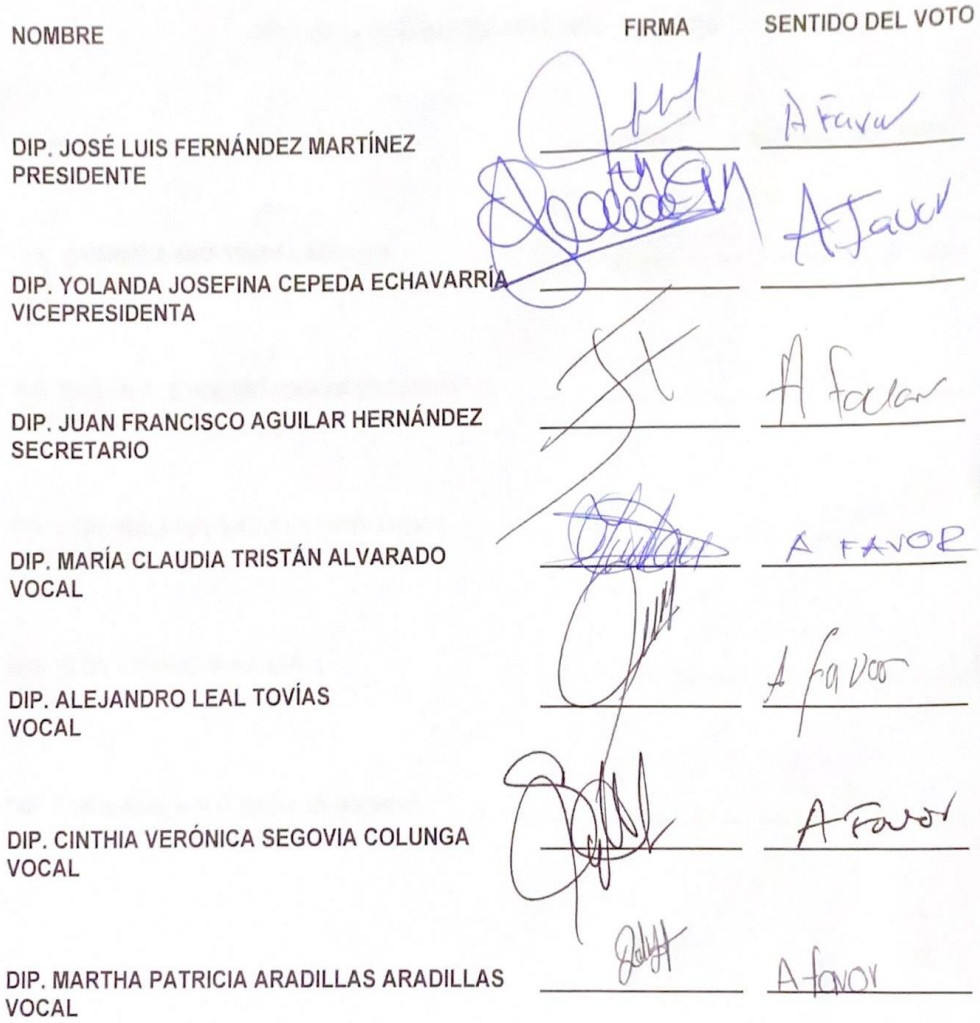 NOMBRE FIRMA SENTIDO DEL VOTO
A Favor
DIP. JOSÉ LUIS FERNÁNDEZ MARTÍNEZ
PRESIDENTE
A Favor
DIP. YOLANDA JOSEFINA CEPEDA ECHAVARRÍA
VICEPRESIDENTA
A favor
DIP. JUAN FRANCISCO AGUILAR HERNÁNDEZ
SECRETARIO
A FAVOR
DIP. MARÍA CLAUDIA TRISTÁN ALVARADO
VOCAL
A favor
DIP. ALEJANDRO LEAL TOVÍAS
VOCAL
A Favor
DIP. CINTHIA VERÓNICA SEGOVIA COLUNGA
VOCAL
A favor
DIP. MARTHA PATRICIA ARADILLAS ARADILLAS
VOCAL